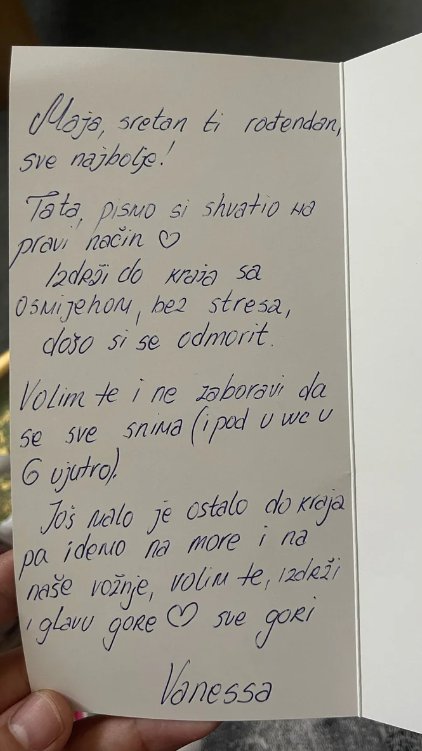 Maja, sretan ti rođendan,
sve najbolje!
Tata, pismo si shvatio na
pravi način ♡
Izdrži do kraja sa
osmijehom, bez stresa,
došo si se odmorit.
Volim te i ne zaboravi da
se sve snima (i pod u wc u
6 ujutro).
Još malo je ostalo do kraja
pa idemo na more i na
naše vožnje, volim te, izdrži
i glavu gore ♡ sve gori
Vanessa